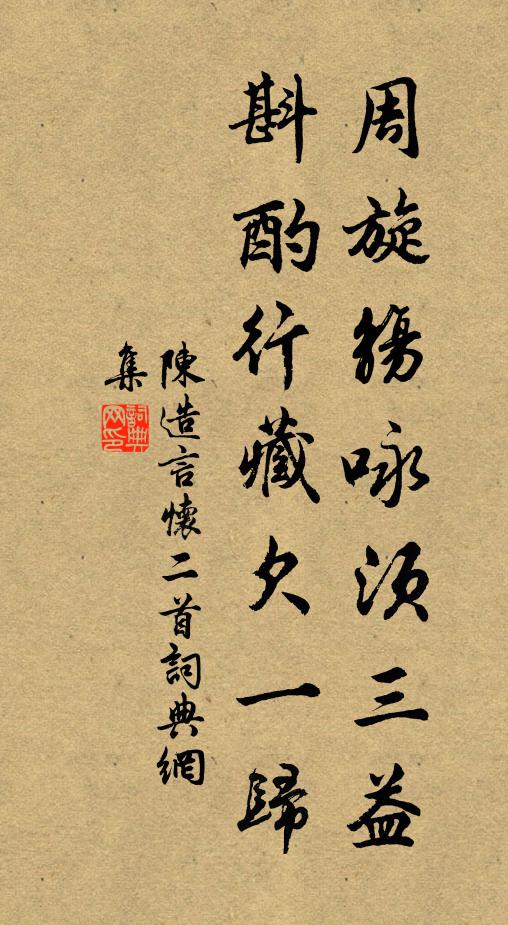 周旋觴咏須三益
斟酌行藏欠一歸
陳造言懷二首詞典網
集
詞典
网印